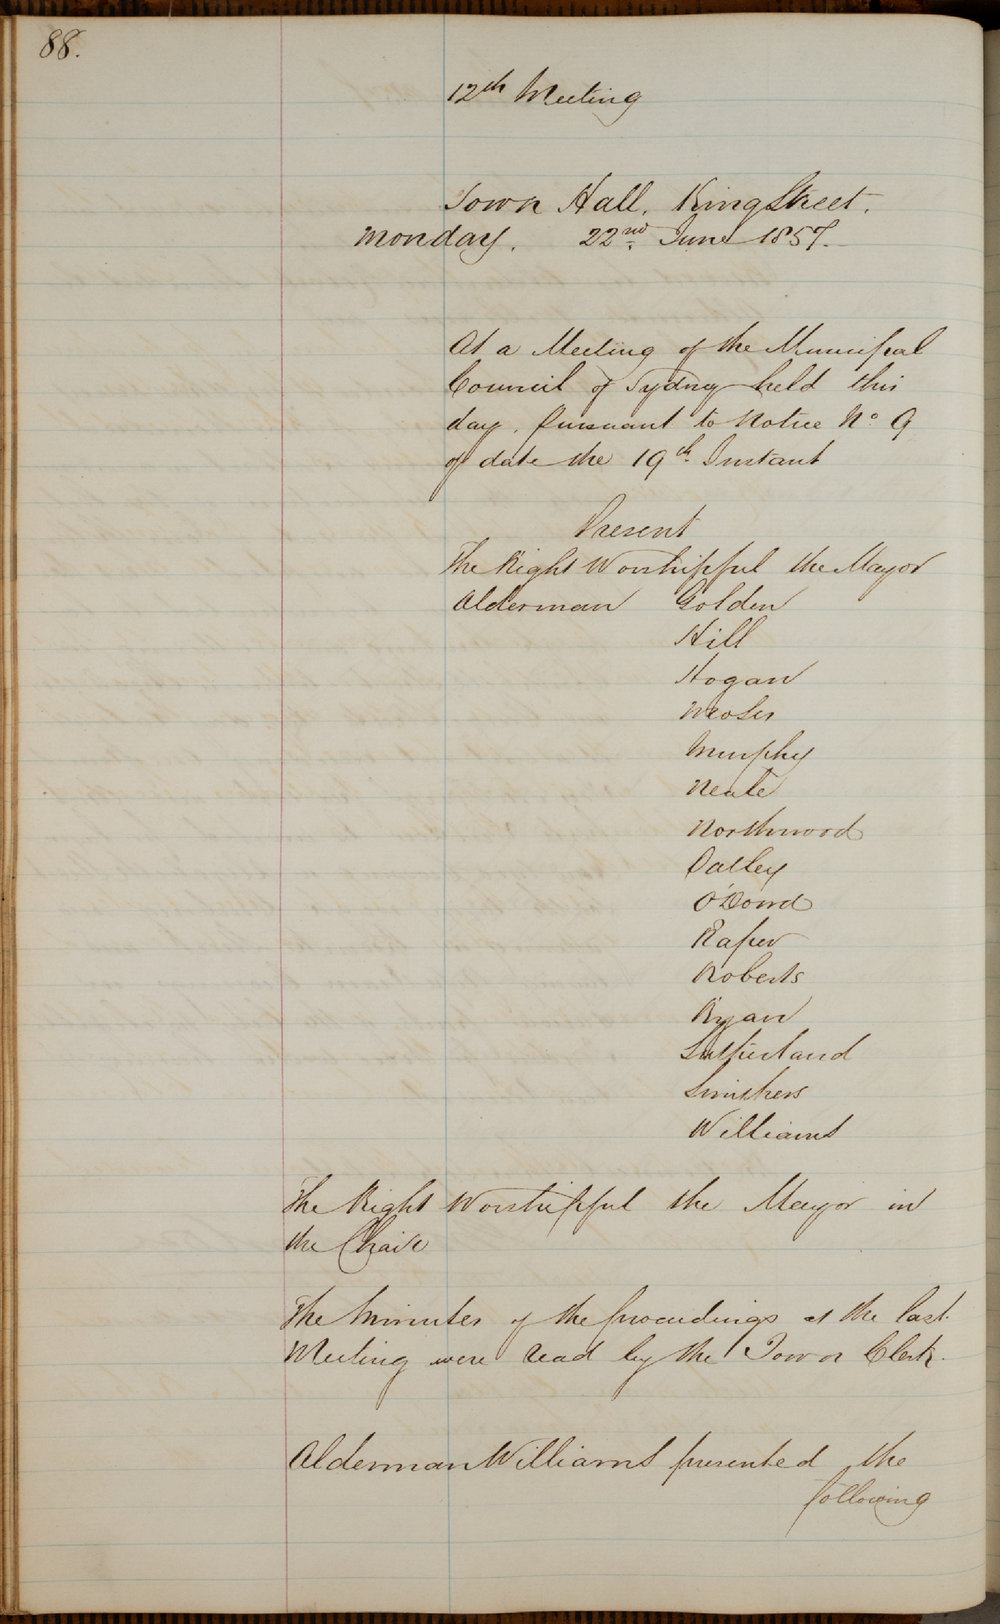 88.
12th Meeting
Town Hall, King Street.
Monday. 22nd June 1857.
At a Meeting of the Municipal
Council of Sydney held this
day, pursuant to Notice No 9
of date the 19th Instant
Present
The Right Worshipful the Mayor
Alderman Golden
Hill
Hogan
Moses
Murphy
Neale
Northwood
Oatley
O'Dowd
Raper
Roberts
Ryan
Sutherland
Smithers
Williams
The Right Worshipful the Mayor in
the Chair
The Minutes of the proceedings at the last
Meeting were read by the Town Clerk.
Alderman Williams presented the
following